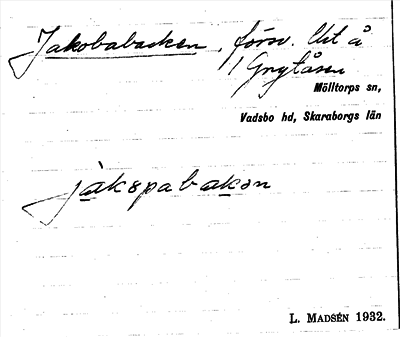 Jakobabacken, försv. Ut å
Grytåsen
Mölltorps sn,
Vadsbo hd, Skaraborgs län
jàkopabakən
L. MADSÉN 1932.